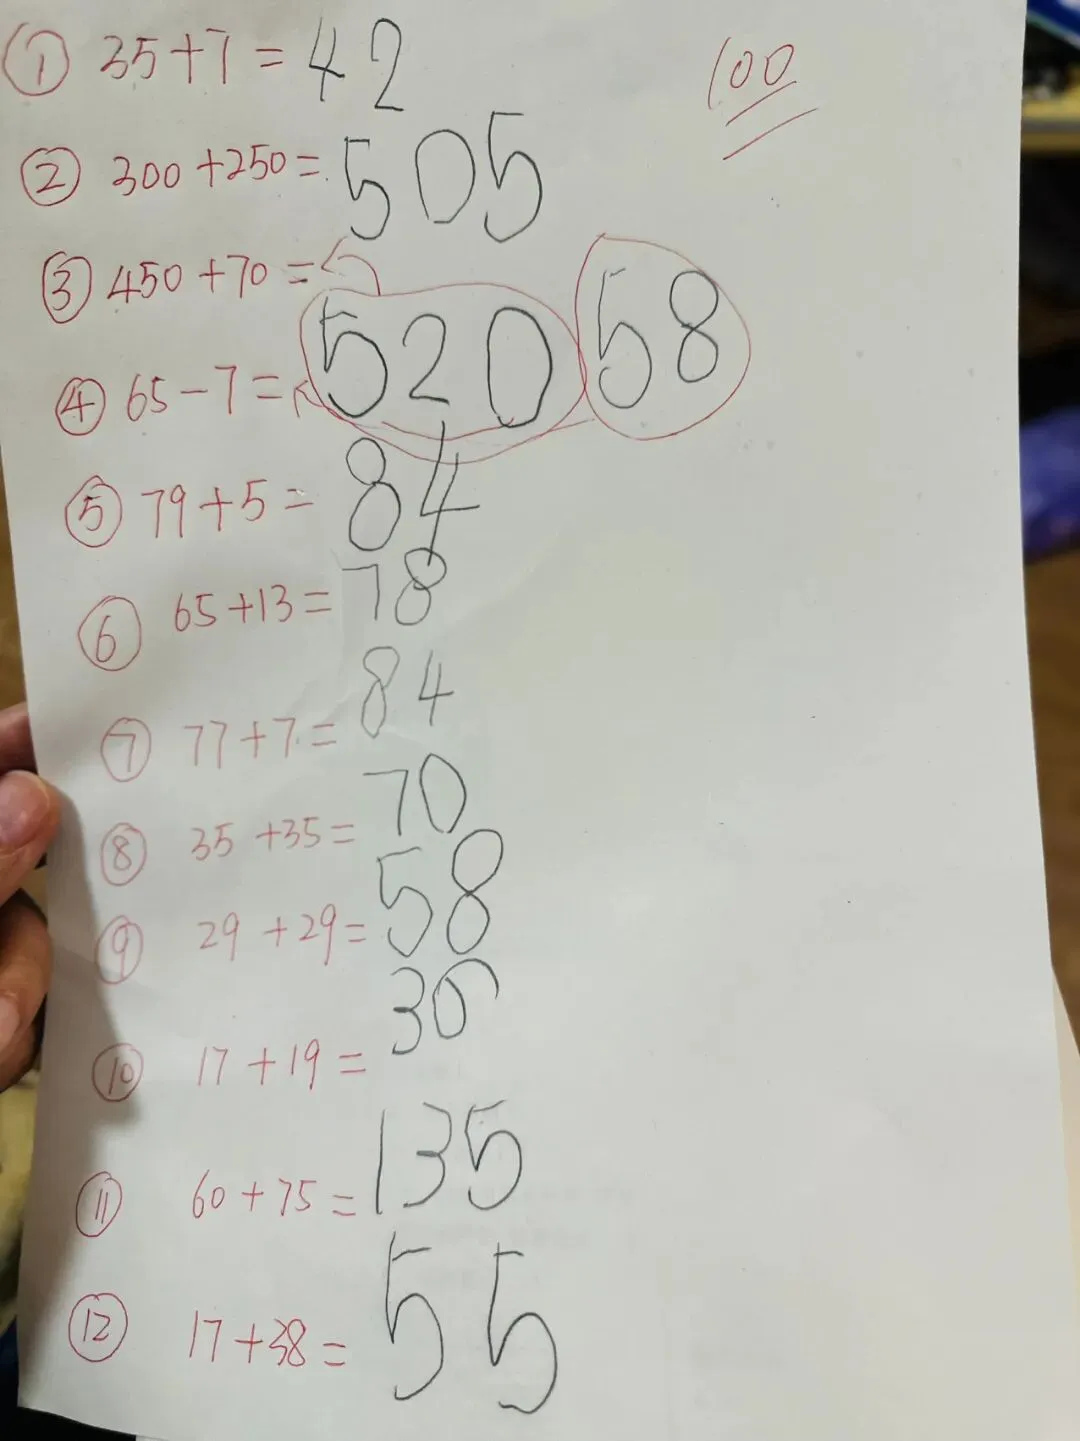 ① 35+7=42
100
② 300+250=505
③ 450+70=520
④ 65-7=58
⑤ 79+5=84
⑥ 65+13=78
⑦ 77+7=84
⑧ 35+35=70
⑨ 29+29=58
⑩ 17+19=36
⑪ 60+75=135
⑫ 17+38=55